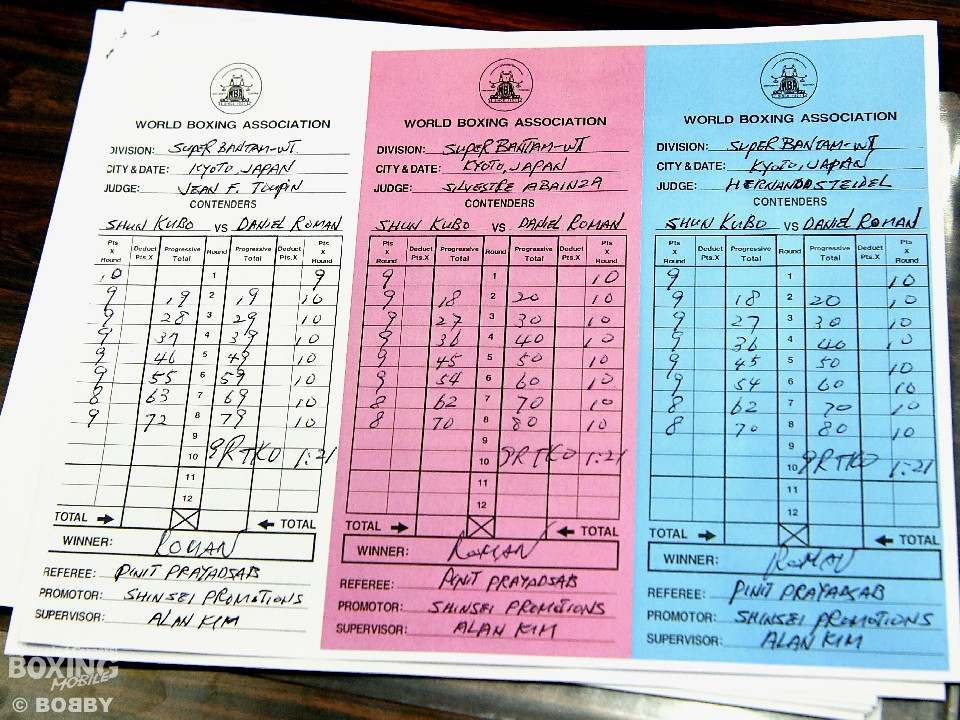 WORLD BOXING ASSOCIATION
DIVISION: SUPER BANTAM-WT
CITY & DATE: KYOTO, JAPAN
JUDGE: JEAN F. TOUPIN
CONTENDERS
SHUN KUBO VS DANIEL ROMAN
Pts X Round Deduct Pts.X Progressive Total Round Progressive Total Deduct Pts.X Pts X Round
10 1 9
9 19 2 19 10
9 28 3 29 10
9 37 4 39 10
9 46 5 49 10
9 55 6 59 10
8 63 7 69 10
9 72 8 79 10
9
10 9RTKO 1:21
11
12
TOTAL TOTAL
WINNER: ROMAN
REFEREE: PINIT PRAYADSAB
PROMOTOR: SHINSEI PROMOTIONS
SUPERVISOR: ALAN KIM
WORLD BOXING ASSOCIATION
DIVISION: SUPER BANTAM-WT
CITY & DATE: KYOTO, JAPAN
JUDGE: SILVESTRE ABAINZA
CONTENDERS
SHUN KUBO VS DANIEL ROMAN
Pts X Round Deduct Pts.X Progressive Total Round Progressive Total Deduct Pts.X Pts X Round
9 1 10
9 18 2 20 10
9 27 3 30 10
9 36 4 40 10
9 45 5 50 10
9 54 6 60 10
8 62 7 70 10
8 70 8 80 10
9
10 9RTKO 1:21
11
12
TOTAL TOTAL
WINNER: ROMAN
REFEREE: PINIT PRAYADSAB
PROMOTOR: SHINSEI PROMOTIONS
SUPERVISOR: ALAN KIM
WBA
WORLD BOXING ASSOCIATION
DIVISION: SUPER BANTAM-WT
CITY & DATE: KYOTO, JAPAN
JUDGE: HERNANDO STEIDEL
CONTENDERS
SHUN KUBO VS DANIEL ROMAN
Pts X Round Deduct Pts.X Progressive Total Round Progressive Total Deduct Pts.X Pts X Round
9 1 10
9 18 2 20 10
9 27 3 30 10
9 36 4 40 10
9 45 5 50 10
9 54 6 60 10
8 62 7 70 10
8 70 8 80 10
9
10 9RTKO 1:21
11
12
TOTAL TOTAL
WINNER: ROMAN
REFEREE: PINIT PRAYADSAB
PROMOTOR: SHINSEI PROMOTIONS
SUPERVISOR: ALAN KIM
BOXING
MOBILE
© BOBBY